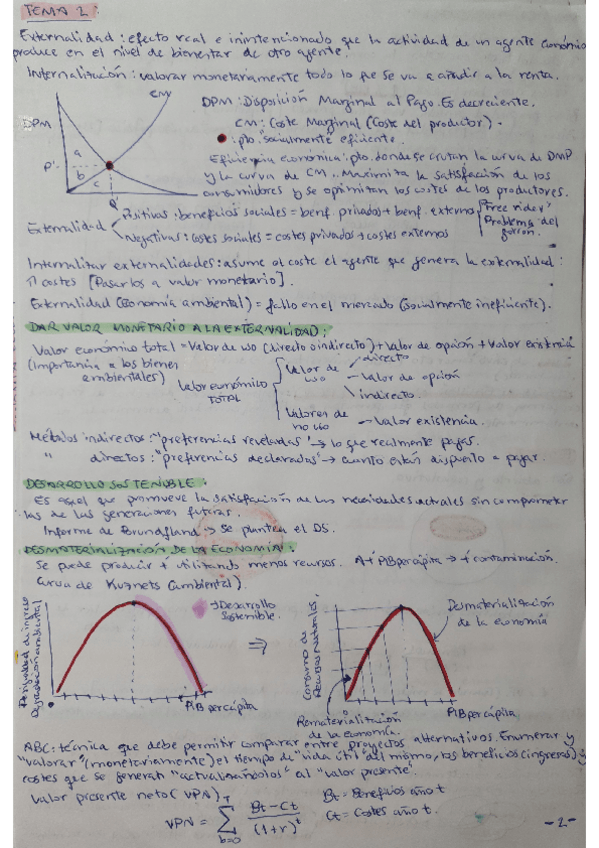 TEMA 2:
Externalidad: efecto real e inintencionado que la actividad de un agente económico
produce en el nivel de bienestar de otro agente.
Internalización: valorar monetariamente todo lo que se va a añadir a la renta.
CM
DPM
P'
a
b
c
Q'
DPM: Disposición Marginal al Pago. Es decreciente.
CM: Coste Marginal (Coste del productor).
: pto. "socialmente" eficiente.
Eficiencia económica: pto. donde se cruzan la curva de DMP
y la curva de CM. Maximiza la satisfacción de los
consumidores y se optimizan los costes de los productores.
Externalidad
Positivas: beneficios sociales = benf. privados + benf. externos
"Free rider"
Problema del
gorrón.
Negativas: costes sociales = costes privados + costes externos
Internalizar externalidades: asume el coste el agente que genera la externalidad:
costes [Pasarlos a valor monetario].
Externalidad (Economía ambiental) = fallo en el mercado (socialmente ineficiente).
DAR VALOR MONETARIO A LA EXTERNALIDAD:
Valor económico total = Valor de uso (directo o indirecto) + Valor de opción + Valor existencia
(Importancia a los bienes
ambientales)
Valor económico
TOTAL
Valor de
uso
directo
Valor de opción
indirecto.
Valores de
no uso
Valor existencia.
Métodos indirectos: "preferencias reveladas" → lo que realmente pagas.
" directos: "preferencias declaradas" → cuanto están dispuesto a pagar.
DESARROLLO SOSTENIBLE:
Es aquel que promueve la satisfacción de las necesidades actuales sin comprometer
las de las generaciones futuras.
Informe de Brundtland → se plantea el DS.
DESMATERIALIZACIÓN DE LA ECONOMÍA:
Se puede producir + utilizando menos recursos. A + PIB percápita → + contaminación.
Curva de Kuznets (ambiental).
Desigualdad de ingreso
Degradación ambiental
→ Desarrollo
Sostenible.
PIB percápita
⇒
Consumo de
Recursos Naturales.
Desmaterialización
de la economía
Rematerialización
de la economía.
PIB percápita
ABC: técnica que debe permitir comparar entre proyectos alternativos. Enumerar y
"valorar" (monetariamente) el tiempo de "vida útil" del mismo, los beneficios (ingresos) y
costes que se generan "actualizándolos" al "valor presente".
Valor presente neto (VPN)
VPN = T ∑ b=0 Bt - Ct / (1+r)^t
Bt = Beneficios año t
Ct = Costes año t.
-2-